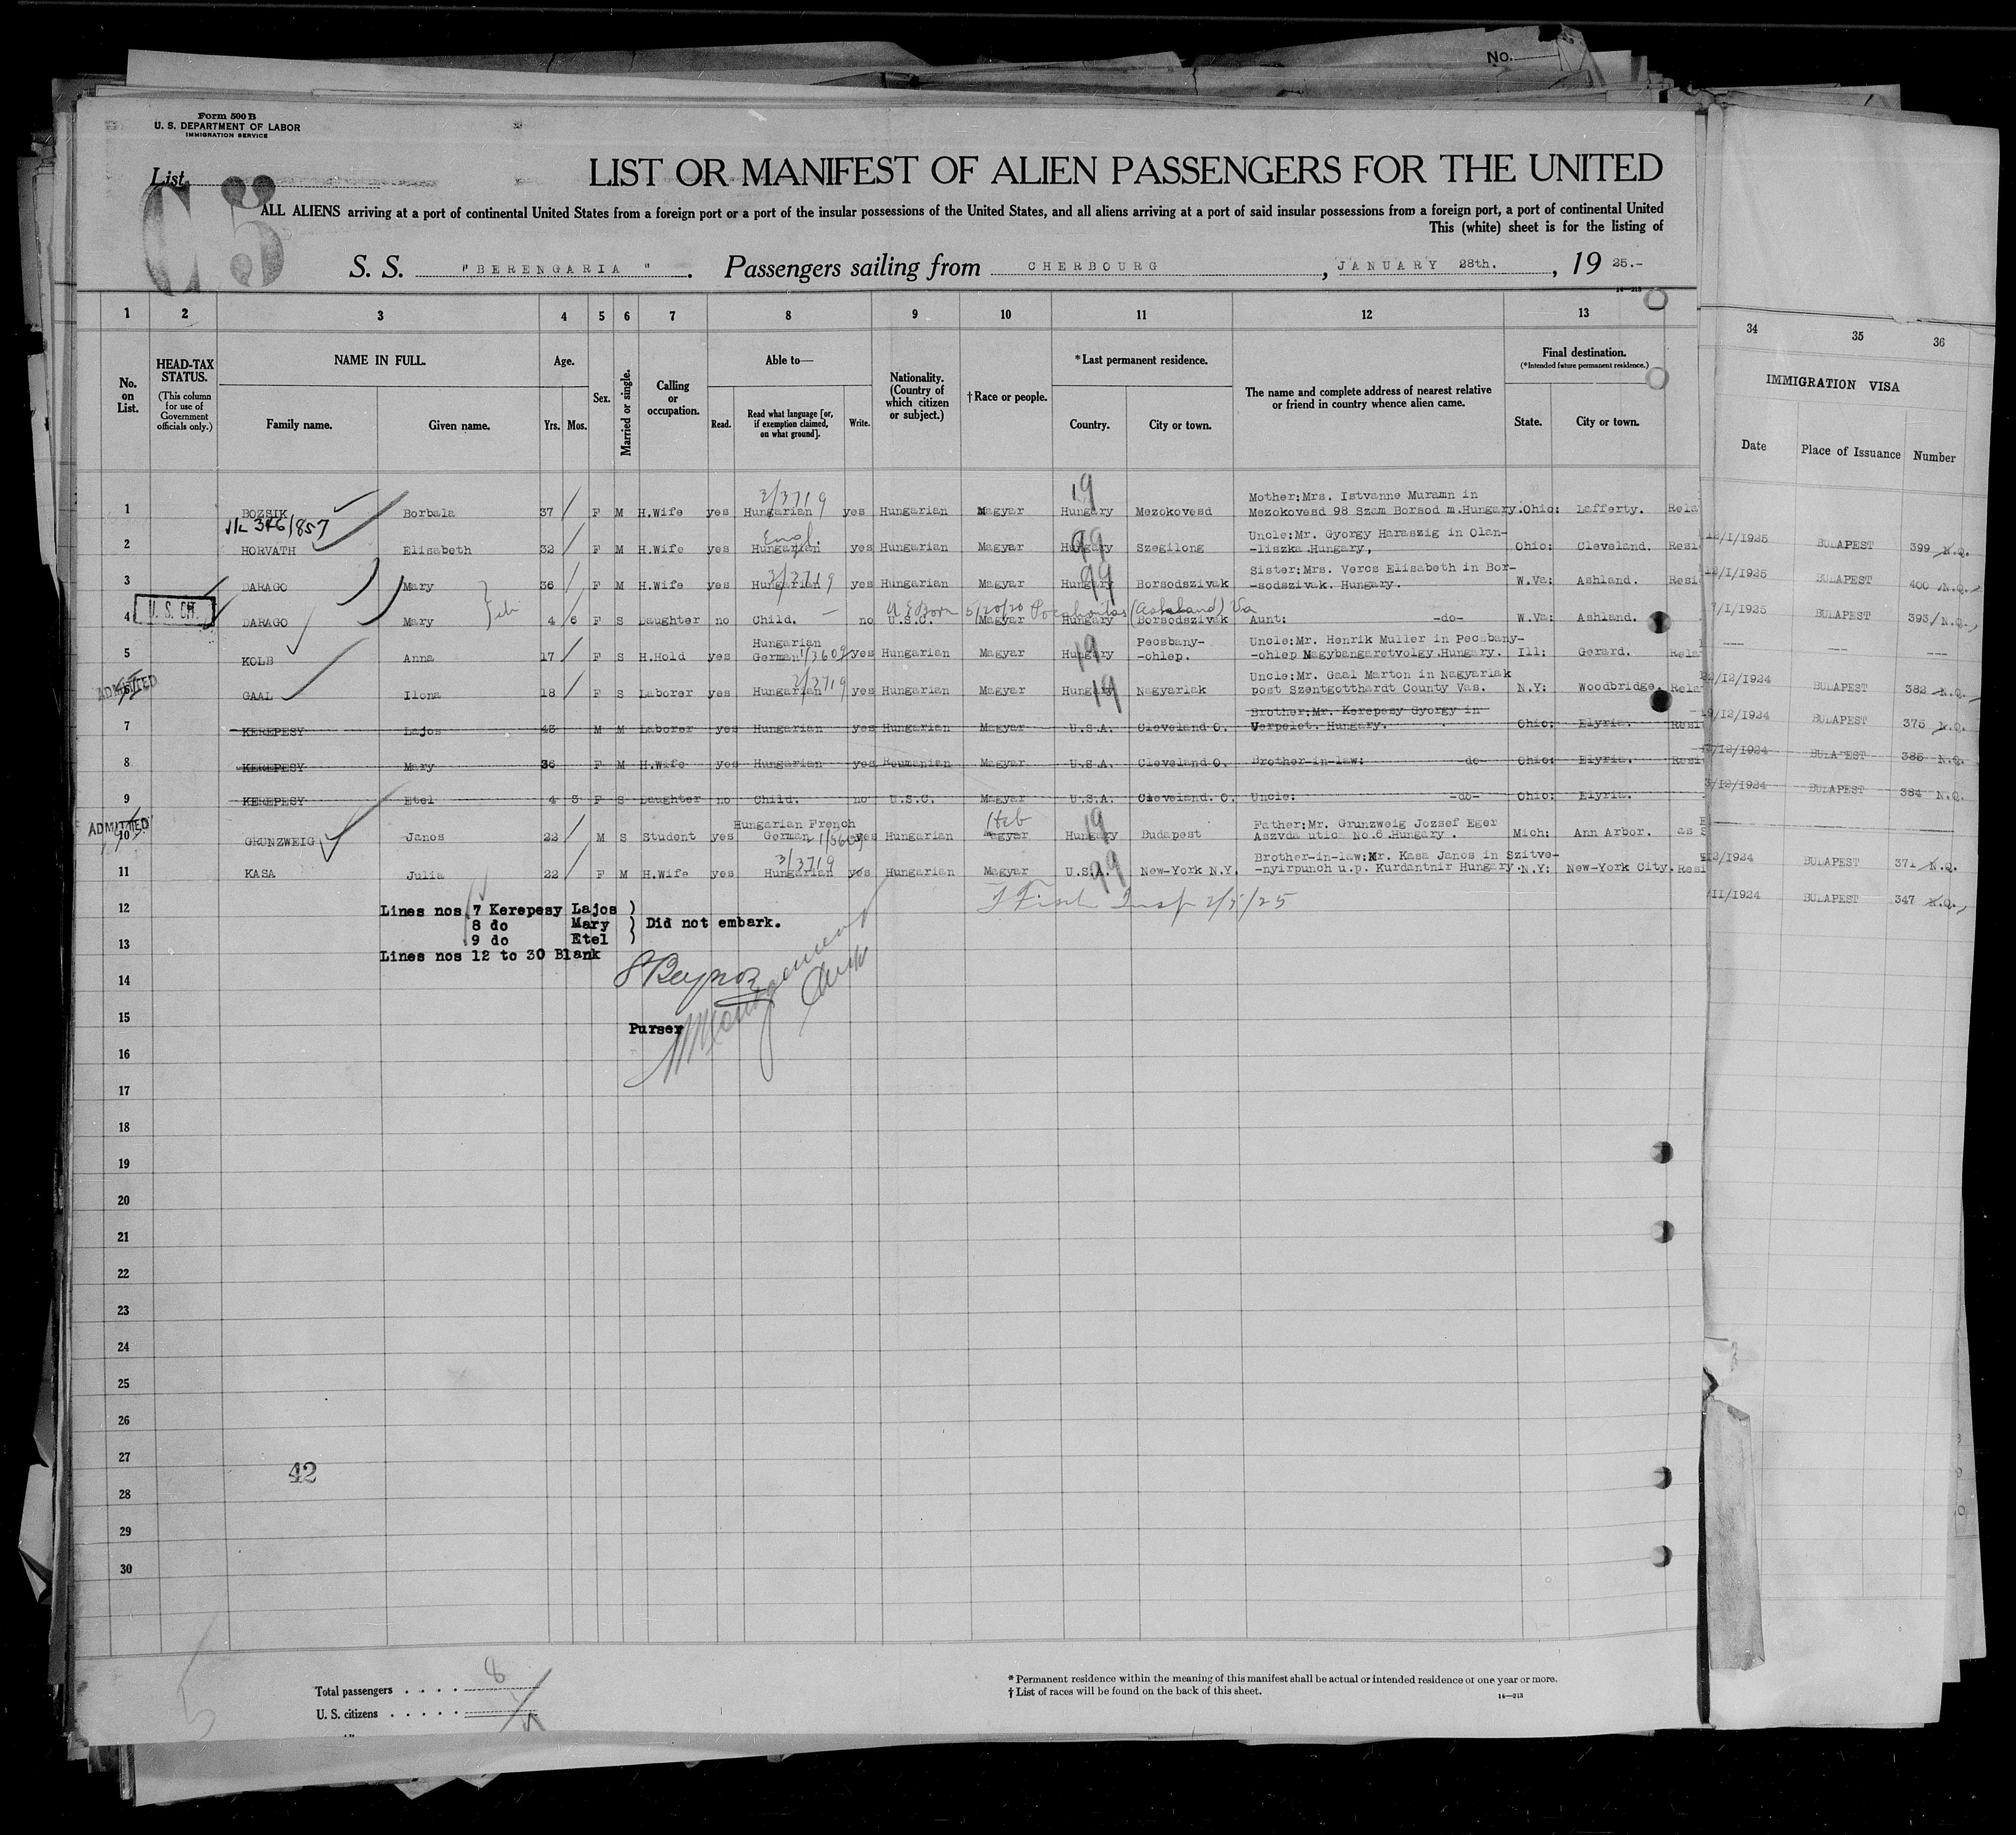 No.
Form 500 B
U. S. DEPARTMENT OF LABOR
IMMIGRATION SERVICE
List
C 5
LIST OR MANIFEST OF ALIEN PASSENGERS FOR THE UNITED
ALL ALIENS arriving at a port of continental United States from a foreign port or a port of the insular possessions of the United States, and all aliens arriving at a port of said insular possessions from a foreign port, a port of continental United
This (white) sheet is for the listing of
S. S. "BERENGARIA". Passengers sailing from CHERBOURG, JANUARY 28th., 1925.-
1 2 3 4 5 6 7 8 9 10 11 12 13 34 35 36
No. on List.
HEAD-TAX STATUS.
(This column for use of Government officials only.)
NAME IN FULL.
Family name. Given name.
Age.
Yrs. Mos.
Sex.
Married or single.
Calling or occupation.
Able to—
Read. Read what language [or, if exemption claimed, on what ground]. Write.
Nationality. (Country of which citizen or subject.)
†Race or people.
*Last permanent residence.
Country. City or town.
The name and complete address of nearest relative or friend in country whence alien came.
Final destination.
(*Intended future permanent residence.)
State. City or town.
IMMIGRATION VISA
Date Place of Issuance Number
3/3719 19 Mother:Mrs. Istvanne Muramn in
1 BOZSIK Borbala 37 F M H.Wife yes Hungarian yes Hungarian Magyar Hungary Mezokovesd Mezokovesd 98 Szam Borsod m.Hungary. Ohio: Lafferty. Rela
346/857
Engl. 99 Uncle:Mr. Gyorgy Haraszig in Olan-
2 HORVATH Elisabeth 32 F M H.Wife yes Hungarian yes Hungarian Magyar Hungary Szegilong -liszka Hungary, Ohio: Cleveland. Resi 12/1/1925 BUDAPEST 399 N.Q.
3/3719 99 Sister:Mrs. Vercs Elisabeth in Bor-
3 DARAGO Mary 36 F M H.Wife yes Hungarian yes Hungarian Magyar Hungary Borsodszivak -sodszivak. Hungary. W.Va: Ashland. Resi 12/1/1925 BUDAPEST 400 N.Q.
U. S. CIT. U S Born 5/20/20 Pocahontas (Ashland) Va
4 DARAGO Mary 4 6 F S Daughter no Child. no U.S.C. Magyar Hungary Borsodszivak Aunt: -do- W.Va: Ashland. 7/1/1925 BUDAPEST 393 N.Q.
Hungarian 19 Pecsbany- Uncle:Mr. Henrik Muller in Pecsbany-
5 KOLB Anna 17 F S H.Hold yes German yes Hungarian Magyar Hungary -ohlep. -ohlep Magybangaretvolgy.Hungary. Ill: Gerard. Rela --- --- ---
ADMITTED 2/3719 Uncle:Mr. Gaal Marton in Nagyarlak
GAAL Ilona 18 F S Laborer yes Hungarian yes Hungarian Magyar Hungary 19 Nagyarlak post Szentgotthardt County Vas. N.Y: Woodbridge. Rela /12/1924 BUDAPEST 382 N.Q.
Brother:Mr. Kerepesy Gyorgy in
7 KEREPESY Lajos 43 M M Laborer yes Hungarian yes Hungarian Magyar U.S.A. Cleveland O. Verpelet. Hungary. Ohio: Elyria. Resi 9/12/1924 BUDAPEST 375 N.Q.
8 KEREPESY Mary 36 F M H.Wife yes Hungarian yes Roumanian Magyar U.S.A. Cleveland O. Brother-in-law: -do- Ohio: Elyria. Resi /12/1924 BUDAPEST 385 N.Q.
9 KEREPESY Etel 4 3 F S Daughter no Child. no U.S.C. Magyar U.S.A. Cleveland. O. Uncle: -do- Ohio: Elyria. 3/12/1924 BUDAPEST 384 N.Q.
ADMITTED Hungarian French Heb 19 Father:Mr. Grunzweig Jozsef Eger
10 GRUNZWEIG Janos 22 M S Student yes German yes Hungarian Magyar Hungary Budapest Aszvda utlca No.6.Hungary. Mich: Ann Arbor. as S
3/3719 99 Brother-in-law:Mr. Kasa Janos in Szitve-
11 KASA Julia 22 F M H.Wife yes Hungarian yes Hungarian Magyar U.S.A. New-York N.Y. -nyirpunch u.p. Kurdantnir Hungary. N.Y: New-York City. Resi /12/1924 BUDAPEST 371 N.Q.
/11/1924 BUDAPEST 347 N.Q.
12 Lines nos 7 Kerepesy Lajos ) Insp 2/5/25
8 do Mary ) Did not embark.
13 9 do Etel )
Lines nos 12 to 30 Blank
14
15 Purser
16
17
18
19
20
21
22
23
24
25
26
27
42
28
29
30
Total passengers . . . . . 8
U. S. citizens . . . . .
*Permanent residence within the meaning of this manifest shall be actual or intended residence of one year or more.
†List of races will be found on the back of this sheet.
14—213